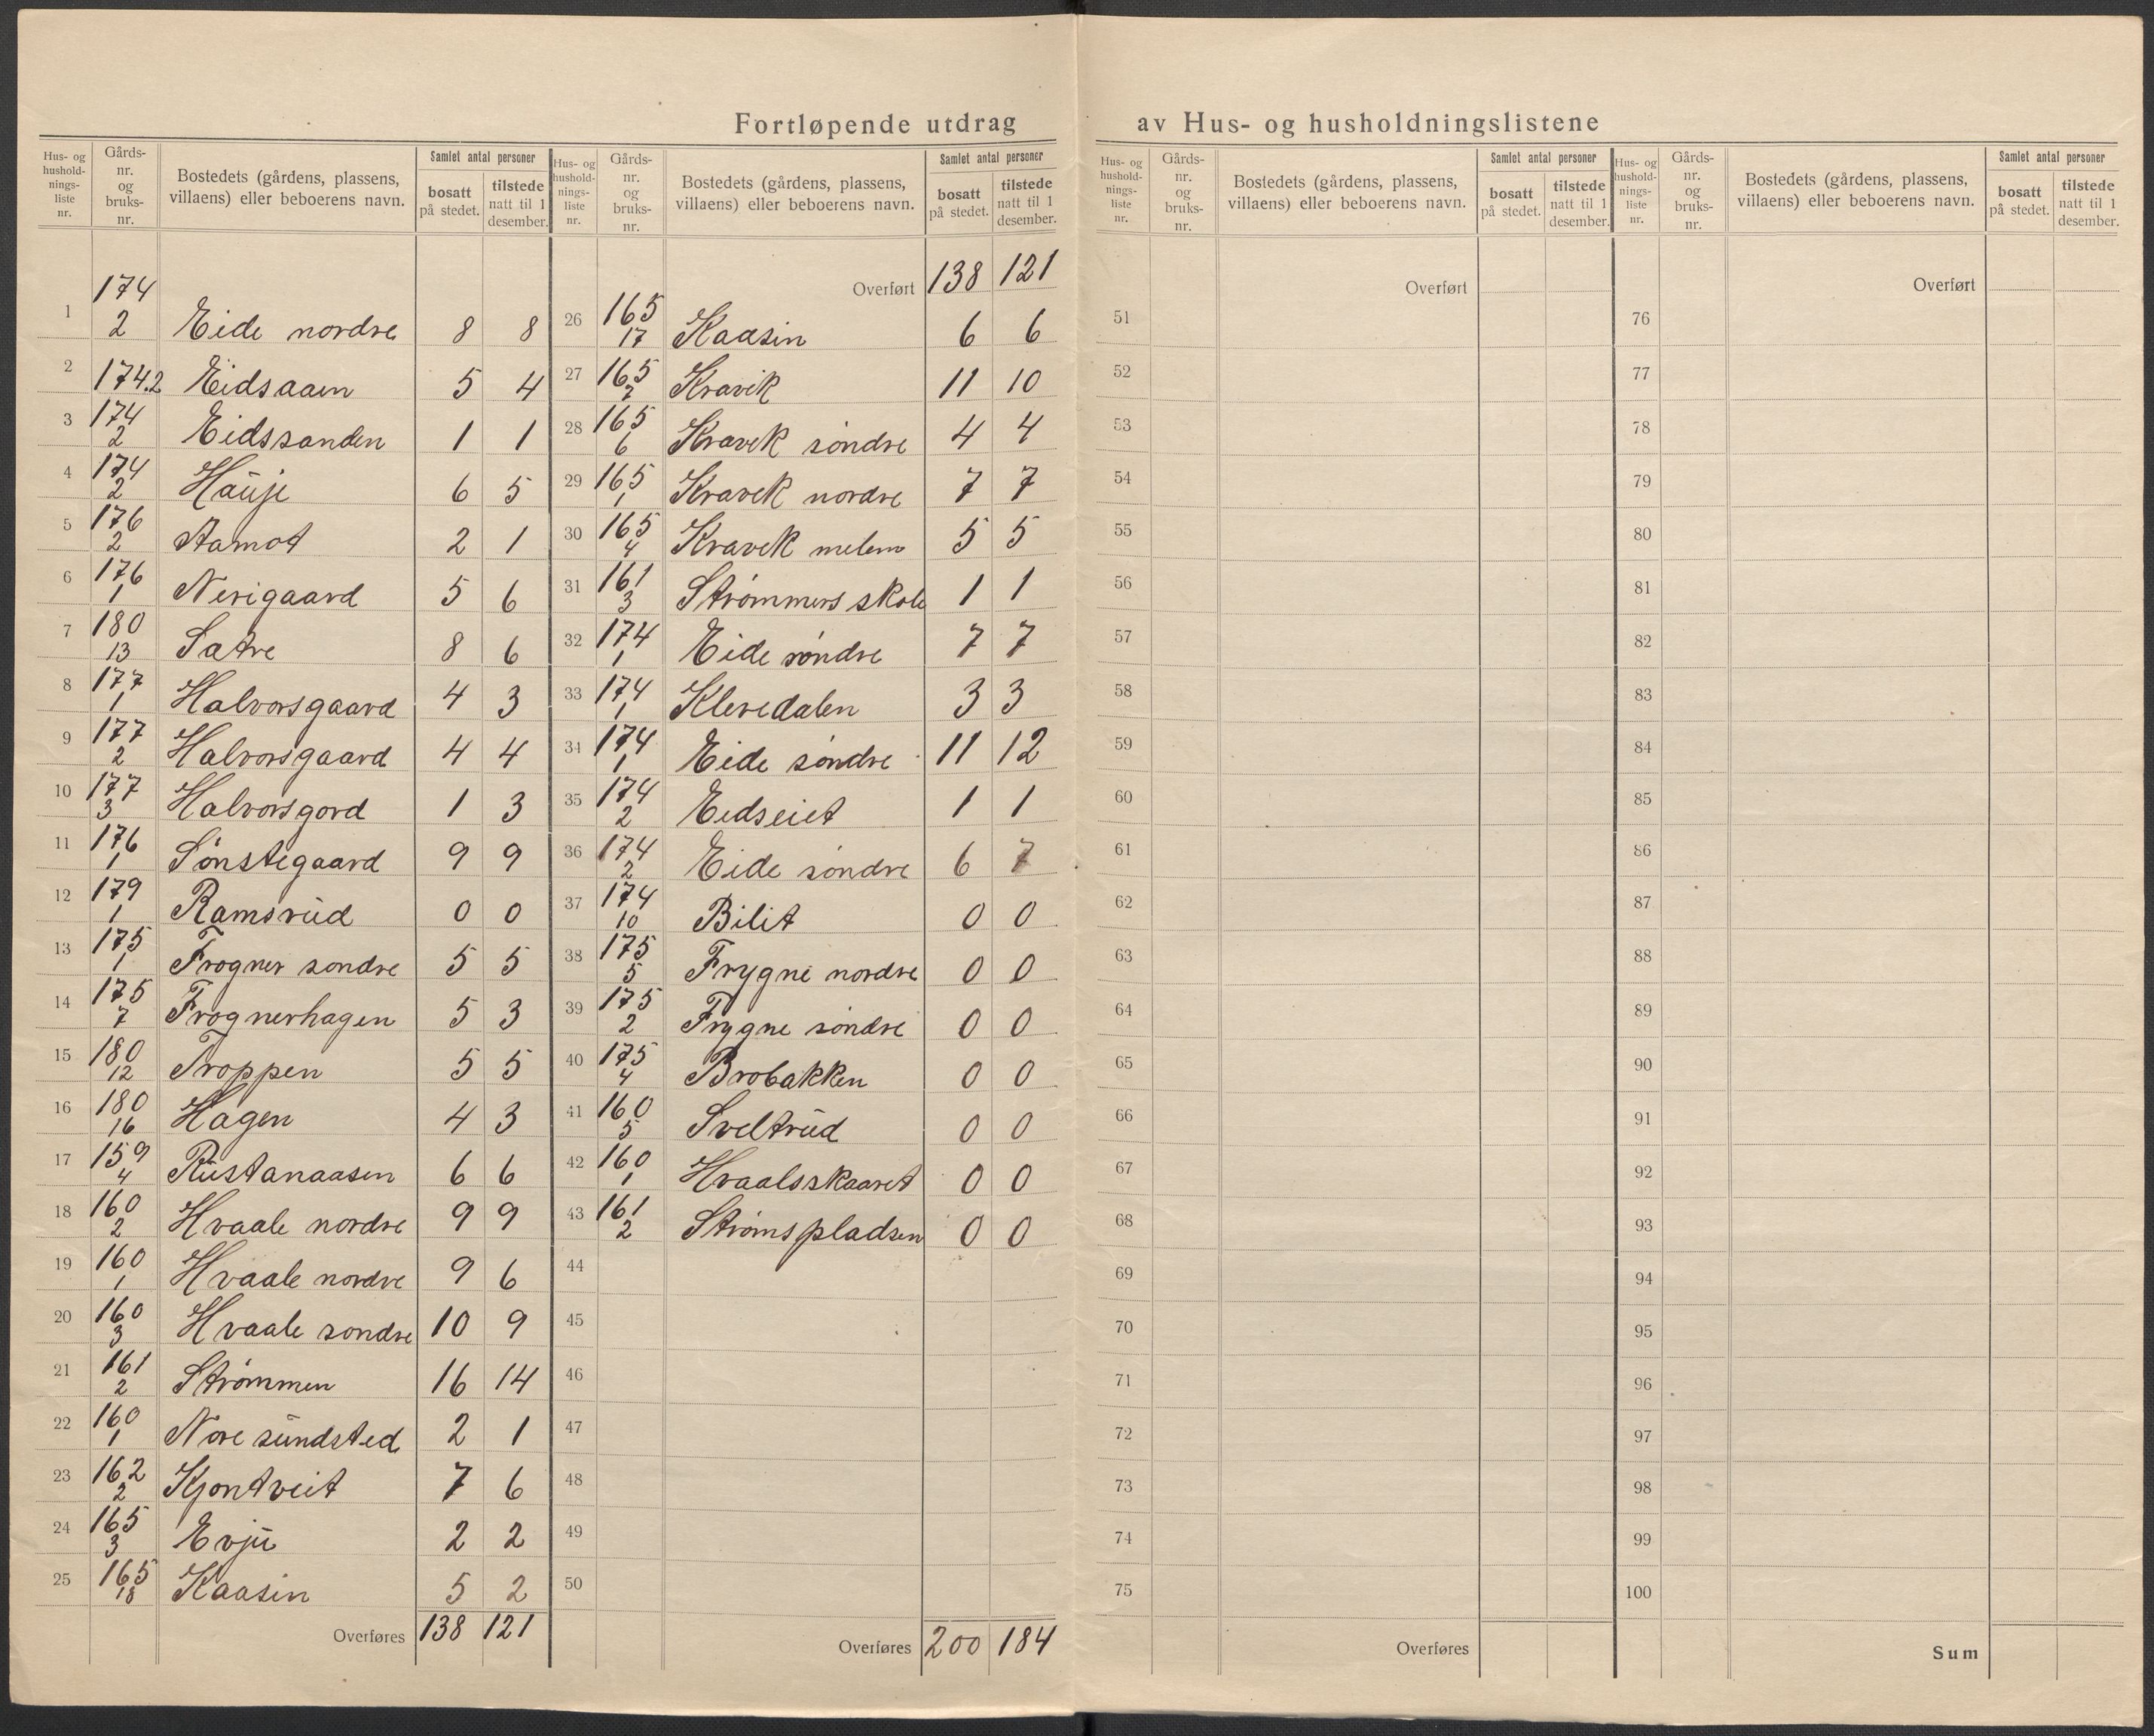 Fortløpende utdrag av Hus- og husholdningslistene
Hus- og hushold-nings-liste nr. Gårds-nr. og bruks-nr. Bostedets (gårdens, plassens, villaens) eller beboerens navn. Samlet antal personer bosatt på stedet. tilstede natt til 1 desember.
1 174 2 Eide nordre 8 8
2 174.2 Eidsaaen 5 4
3 174 2 Eidssanden 1 1
4 174 2 Hauje 6 5
5 176 2 Aamot 2 1
6 176 1 Nerigaard 5 6
7 180 13 Satre 8 6
8 177 1 Halvorsgaard 4 3
9 177 2 Halvorsgaard 4 4
10 177 3 Halvorsgord 1 3
11 176 1 Sönstegaard 9 9
12 179 1 Ramsrud 0 0
13 175 1 Frogner sondre 5 5
14 175 7 Frognerhagen 5 3
15 180 12 Troppen 5 5
16 180 16 Hagen 4 3
17 159 4 Rustanaasen 6 6
18 160 2 Hvaale nordre 9 9
19 160 1 Hvaale nordre 9 6
20 160 3 Hvaale sondre 10 9
21 161 2 Strömmen 16 14
22 160 1 Nore sundsted 2 1
23 162 2 Kjontveit 7 6
24 165 3 Evju 2 2
25 165 18 Kaasin 5 2
Overføres 138 121
Hus- og hushold-nings-liste nr. Gårds-nr. og bruks-nr. Bostedets (gårdens, plassens, villaens) eller beboerens navn. Samlet antal personer bosatt på stedet. tilstede natt til 1 desember.
Overført 138 121
26 165 17 Kaasin 6 6
27 165 2 Kravik 11 10
28 165 6 Kravek söndre 4 4
29 165 1 Kravek nordre 7 7
30 165 4 Kravek melem 5 5
31 161 3 Strömmers skole 1 1
32 174 1 Eide söndre 7 7
33 174 1 Klevedalen 3 3
34 174 1 Eide söndre 11 12
35 174 2 Eidseiet 1 1
36 174 2 Eide söndre 6 7
37 174 10 Bilit 0 0
38 175 5 Frygne nordre 0 0
39 175 2 Frygne söndre 0 0
40 175 4 Brobakken 0 0
41 160 5 Sveltrud 0 0
42 160 1 Hvaalsskaaret 0 0
43 161 2 Strömspladsen 0 0
44
45
46
47
48
49
50
Overføres 200 184
Hus- og hushold-nings-liste nr. Gårds-nr. og bruks-nr. Bostedets (gårdens, plassens, villaens) eller beboerens navn. Samlet antal personer bosatt på stedet. tilstede natt til 1 desember.
Overført
51
52
53
54
55
56
57
58
59
60
61
62
63
64
65
66
67
68
69
70
71
72
73
74
75
Overføres
Hus- og hushold-nings-liste nr. Gårds-nr. og bruks-nr. Bostedets (gårdens, plassens, villaens) eller beboerens navn. Samlet antal personer bosatt på stedet. tilstede natt til 1 desember.
Overført
76
77
78
79
80
81
82
83
84
85
86
87
88
89
90
91
92
93
94
95
96
97
98
99
100
Sum